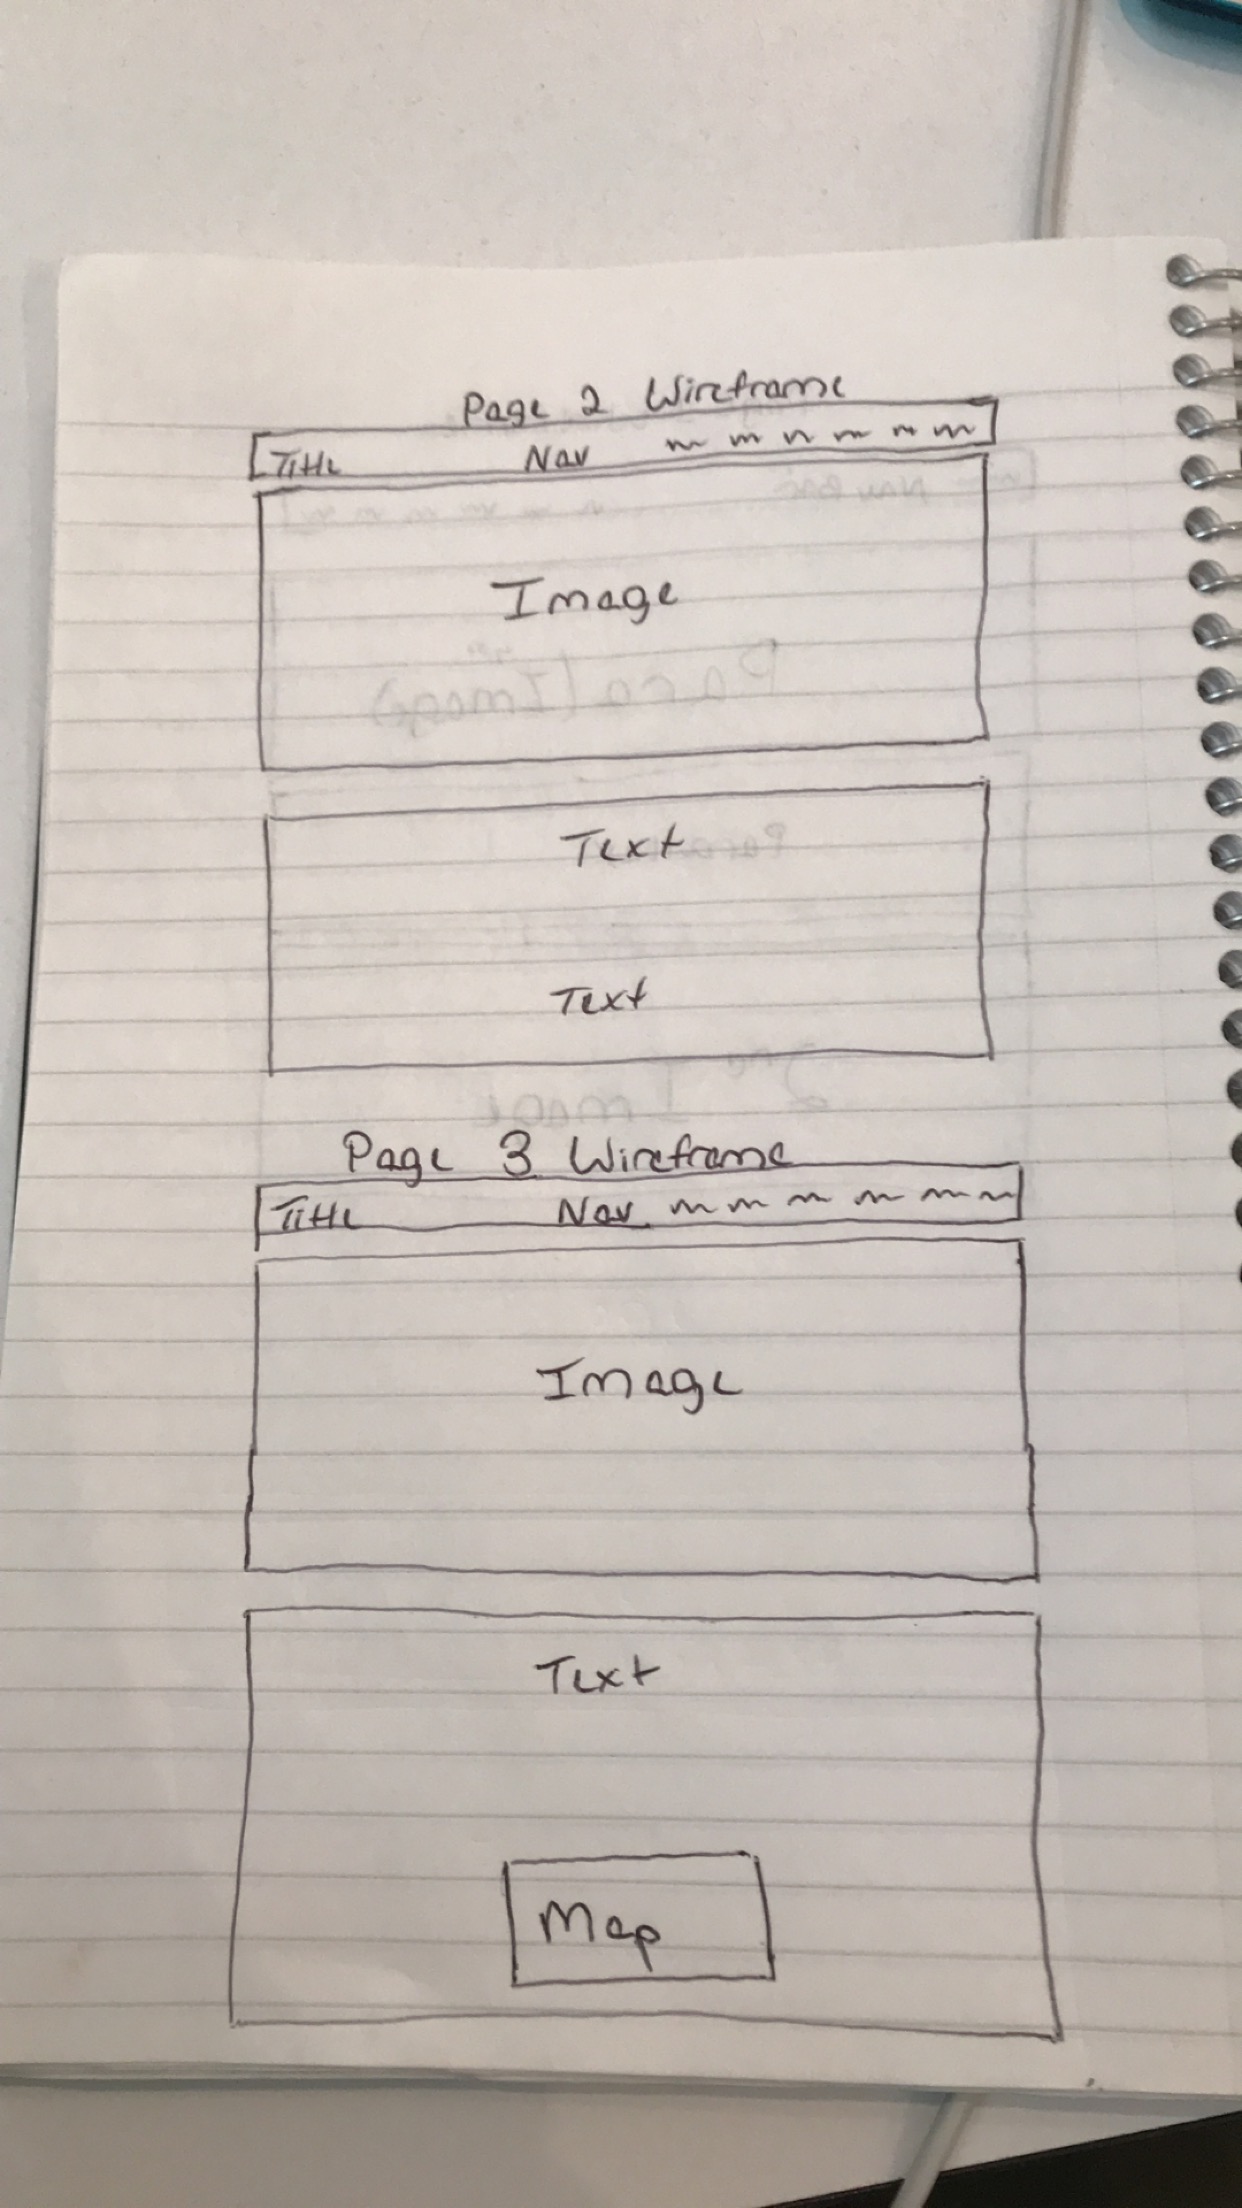 Page 2 Wireframe
Title Nav
Image
Text
Text
Page 3 Wireframe
Title Nav
Image
Text
Map